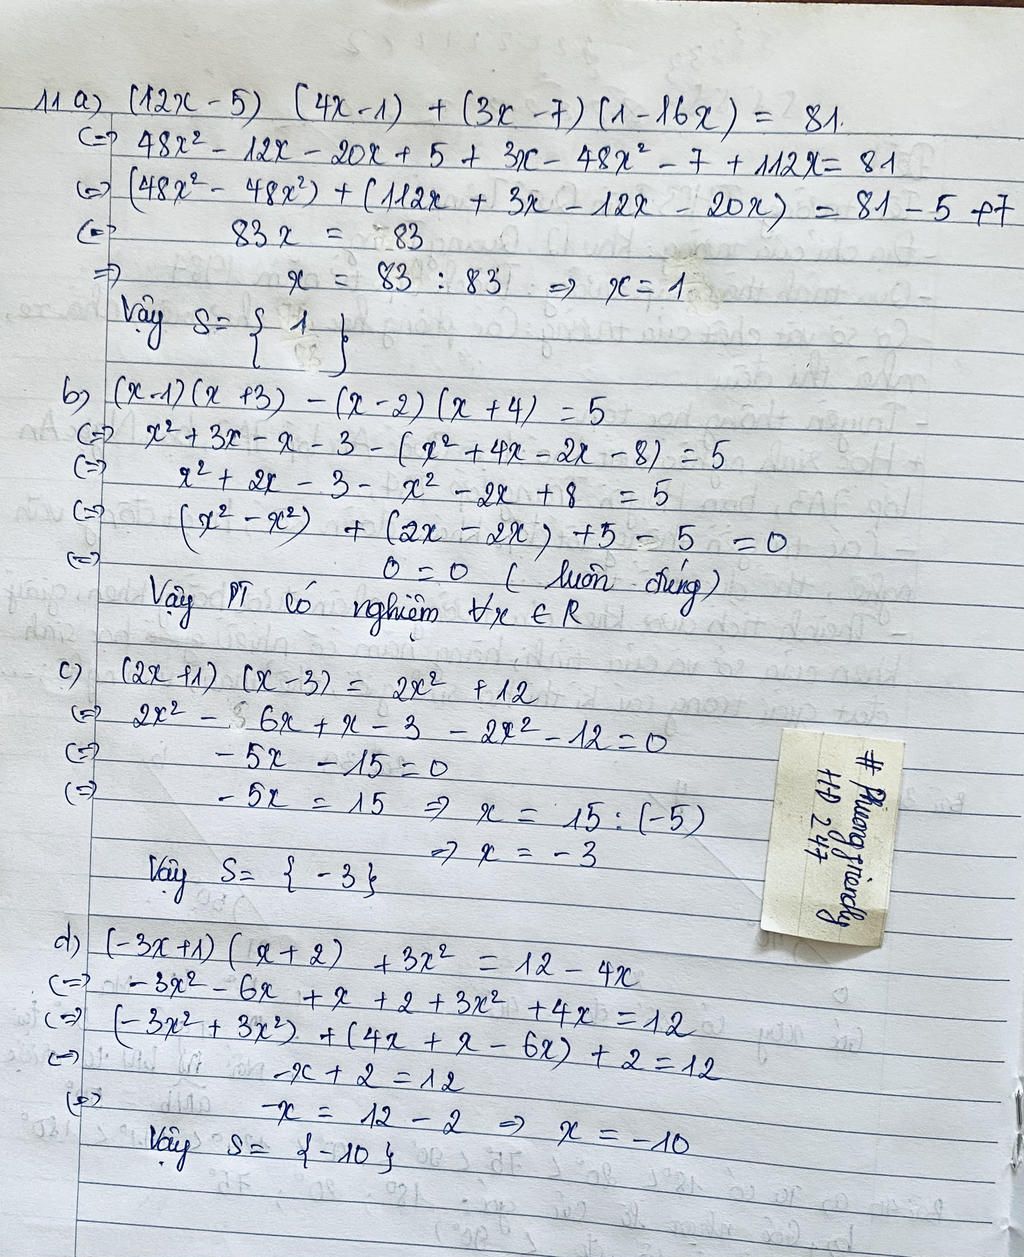 11 a) (12x - 5) (4x - 1) + (3x - 7) (1 - 16x) = 81.
(=) 48x² - 12x - 20x + 5 + 3x - 48x² - 7 + 112x = 81
(=) (48x² - 48x²) + (112x + 3x - 12x - 20x) = 81 - 5 + 7
(=) 83x = 83
=> x = 83 : 83 => x = 1
Vậy S = { 1 }
b) (x - 1) (x + 3) - (x - 2) (x + 4) = 5
(=) x² + 3x - x - 3 - (x² + 4x - 2x - 8) = 5
(=) x² + 2x - 3 - x² - 2x + 8 = 5
(=) (x² - x²) + (2x - 2x) + 5 - 5 = 0
(=) 0 = 0 ( luôn đúng)
Vậy PT có nghiệm ∀x ∈ R
c) (2x + 1) (x - 3) = 2x² + 12
(=) 2x² - 6x + x - 3 - 2x² - 12 = 0
(=) - 5x - 15 = 0
(=) - 5x = 15 => x = 15 : (-5)
=> x = - 3
Vậy S = { - 3 }
# Phuongfriendly
HD 247
d) (-3x + 1) (x + 2) + 3x² = 12 - 4x
(=) - 3x² - 6x + x + 2 + 3x² + 4x = 12
(=) (-3x² + 3x²) + (4x + x - 6x) + 2 = 12
(=) -x + 2 = 12
(=) -x = 12 - 2 => x = -10
Vậy S = { -10 }